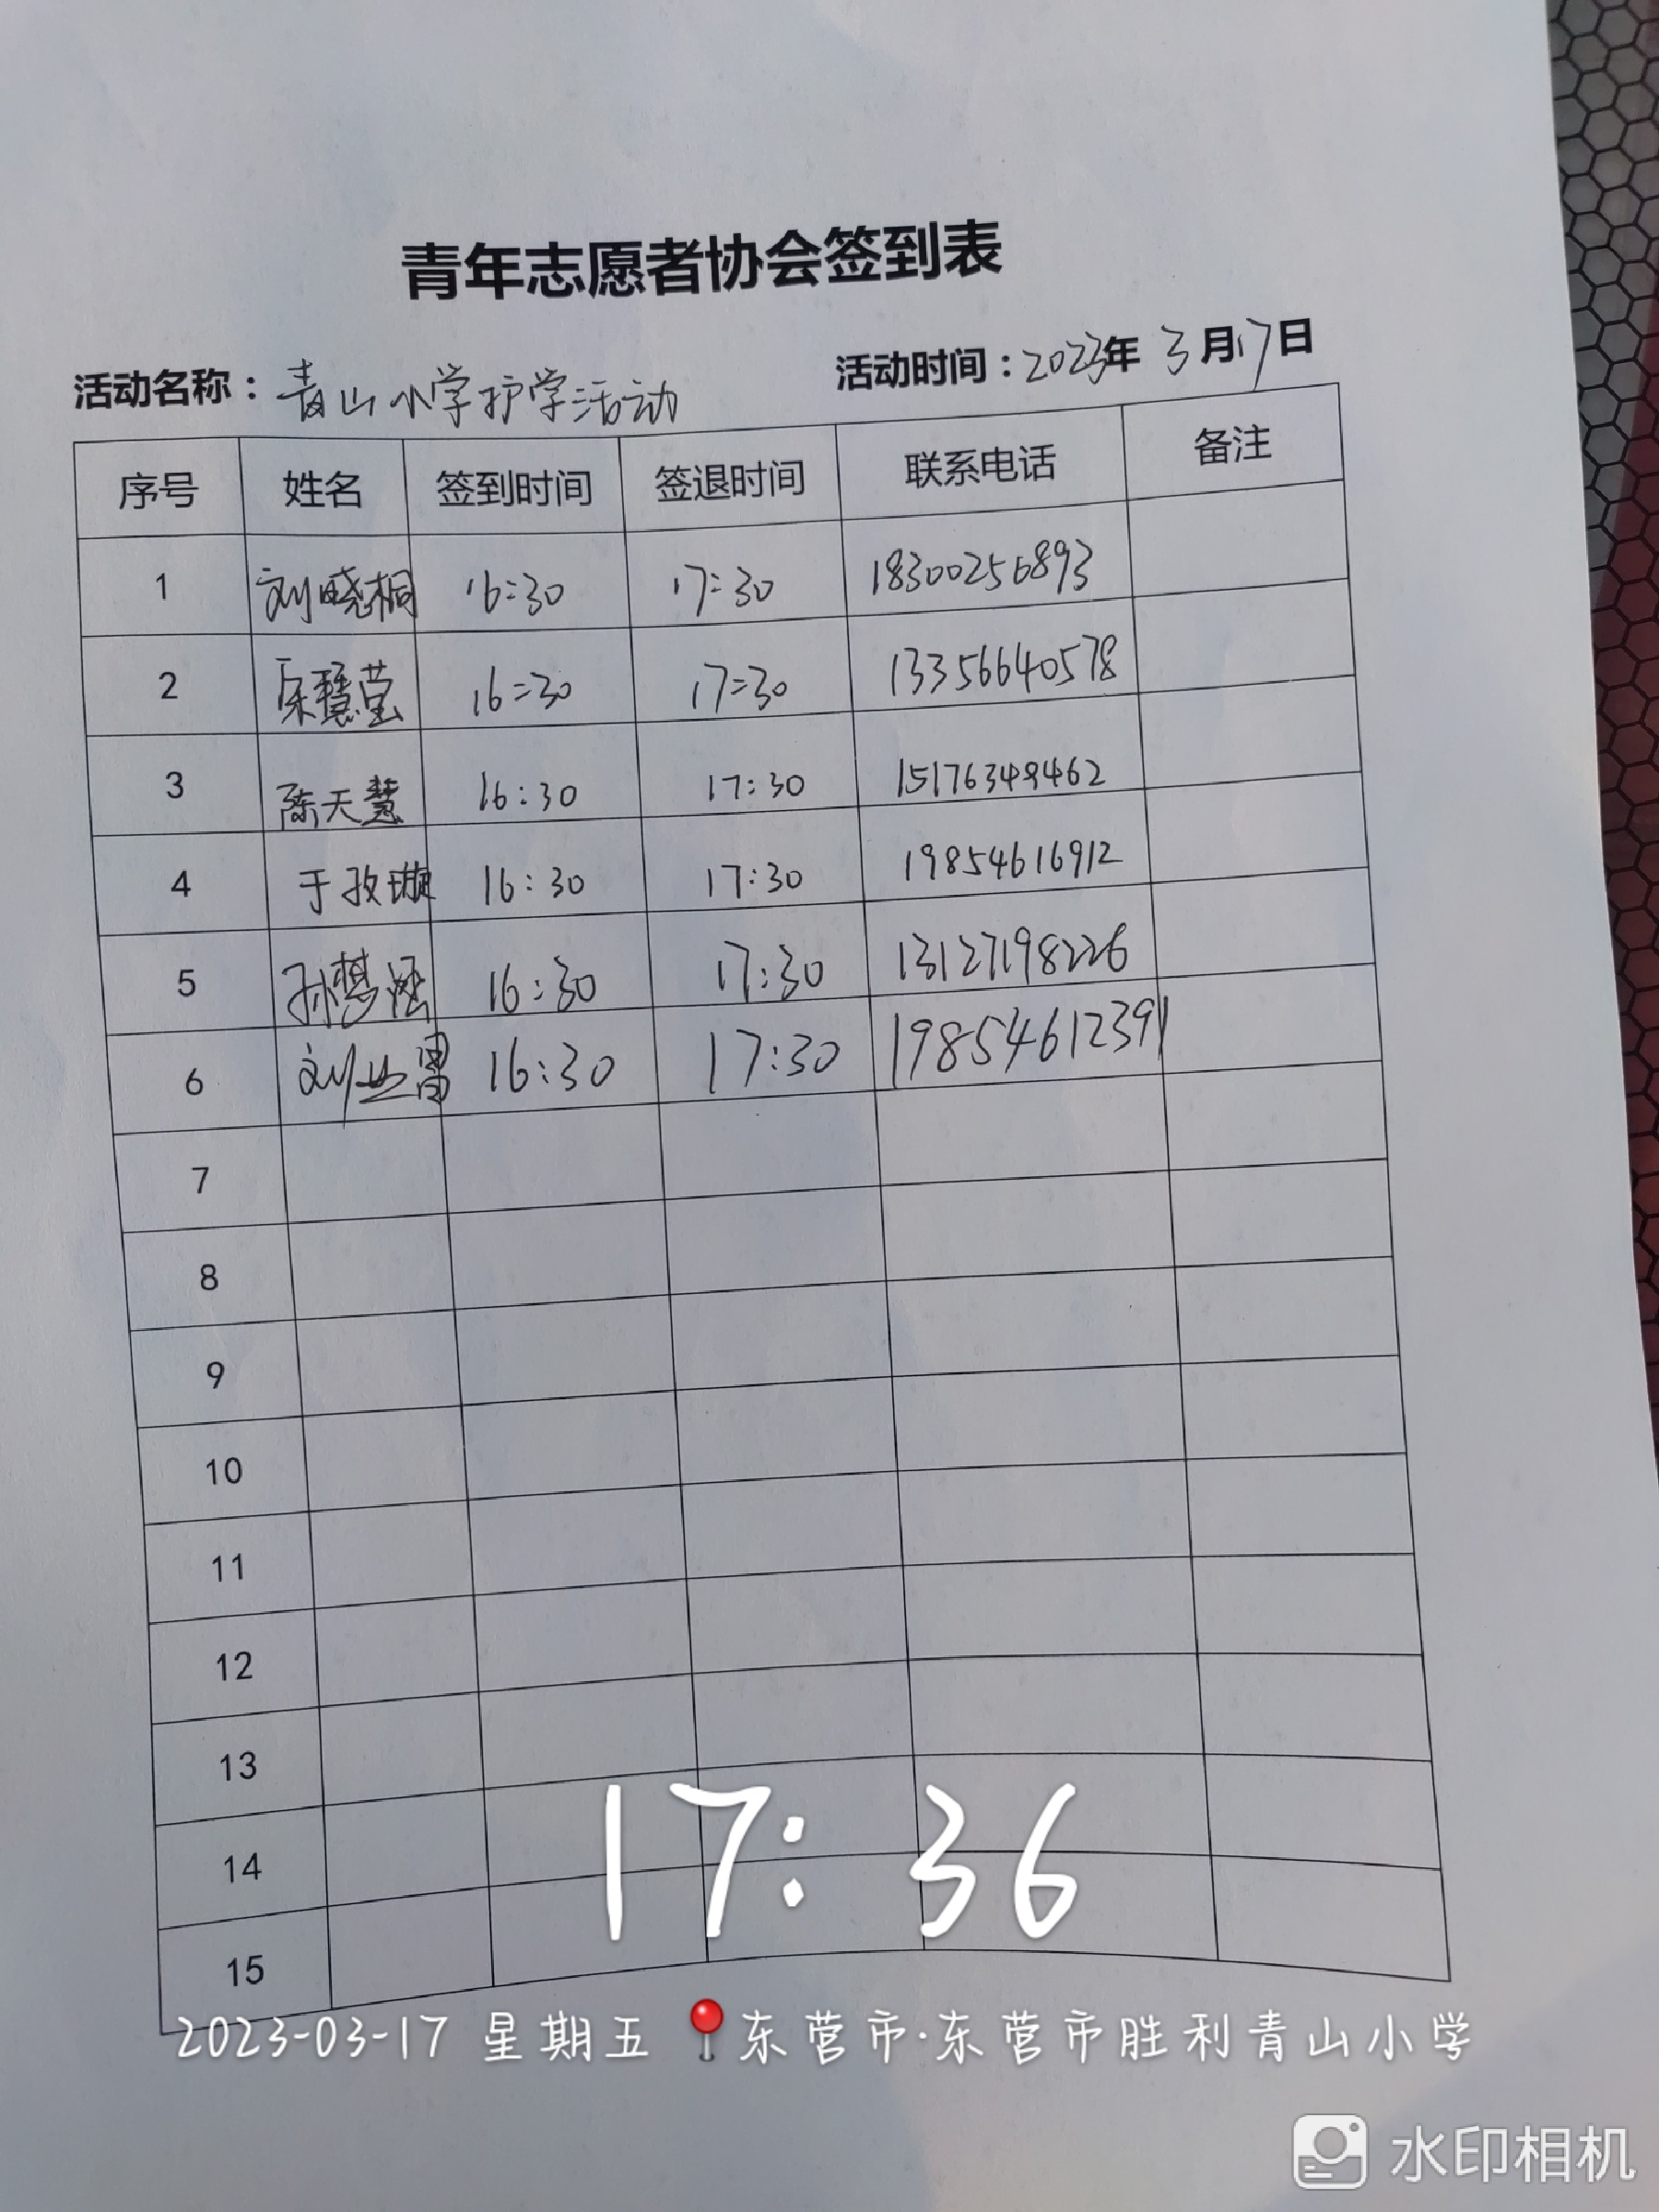 青年志愿者协会签到表
活动名称：青山小学护学活动 活动时间：2023年 3月17日
序号 姓名 签到时间 签退时间 联系电话 备注
1 刘晓桐 16:30 17:30 18300256893
2 宋慧莹 16:30 17:30 13356640578
3 陈天慧 16:30 17:30 15176349462
4 于孜璇 16:30 17:30 19854616912
5 孙梦涵 16:30 17:30 13127198226
6 刘 16:30 17:30 19854612391
7
8
9
10
11
12
13
14
15
17:36
2023-03-17 星期五 东营市·东营市胜利青山小学
水印相机